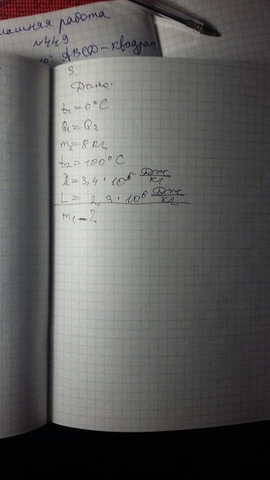 машняя работа
№449
ABCD-квадрат
3.
Дано:
t₁=0°C
Q₁=Q₂
m₂=8 кг
t₂=100°C
λ=3,4·10⁶ Дж/кг
L=2,3·10⁶ Дж/кг
m₁-?